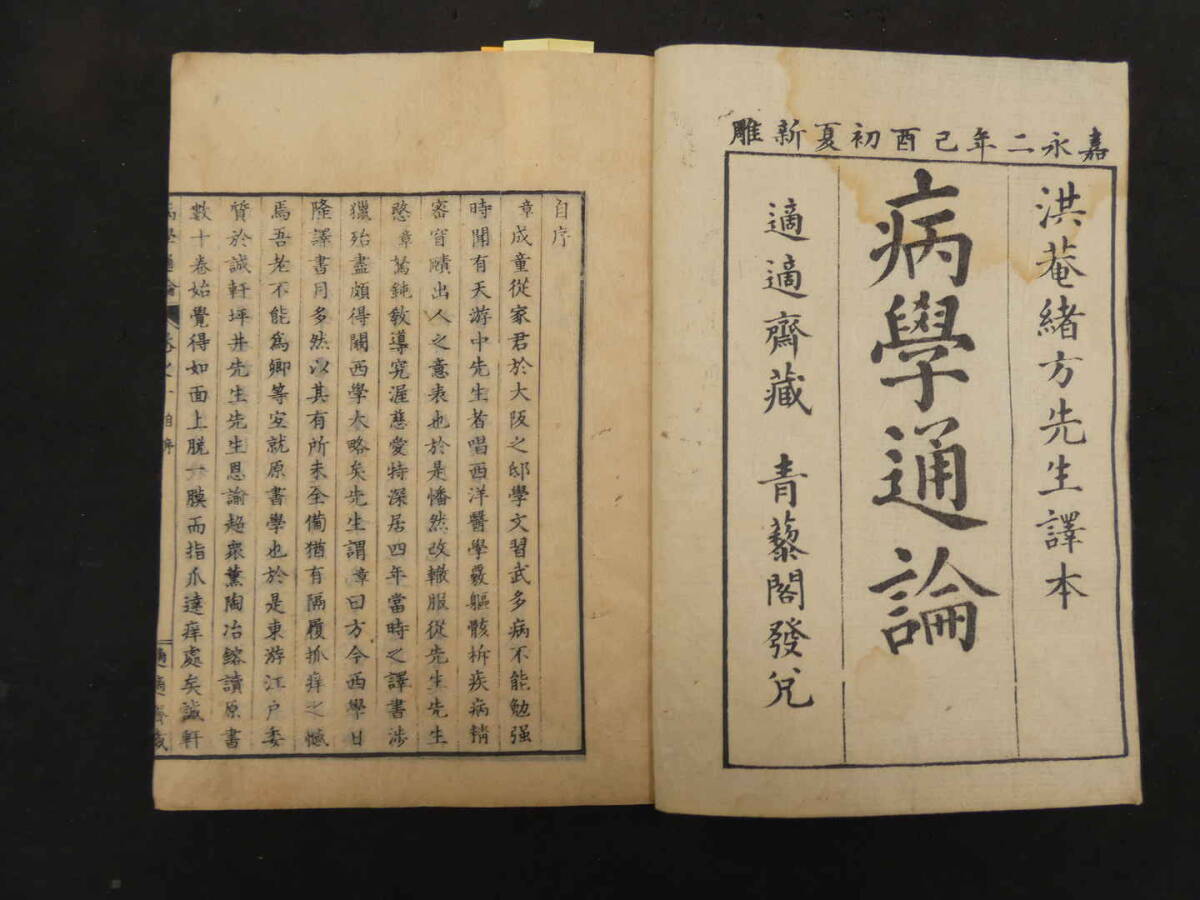 嘉永二年己酉初夏新雕
洪菴緒方先生譯本
病學通論
適適齋藏 青藜閣發兌
自序
章成童從家君於大阪之邸學文習武多病不能勉强
時聞有天游中先生者唱西洋醫學覈軀骸柝疾病精
審實賾出人之意表也於是憣然改轍服從先生先生
愍章駑鈍敎導究渥慈愛特深居四年當時之譯書涉
獵殆盡頗得闚西學大略矣先生謂章曰方今西學日
隆譯書月多然以其有所未全備猶有隔履抓痒之憾
焉吾老不能爲卿等宜就原書學也於是東游江戶委
贄於誠軒坪井先生先生恩諭超衆薰陶冶鎔讀原書
數十卷始覺得如面上脫一膜而指爪達痒處矣誠軒
病學通論 卷之一 自序 適適齋藏